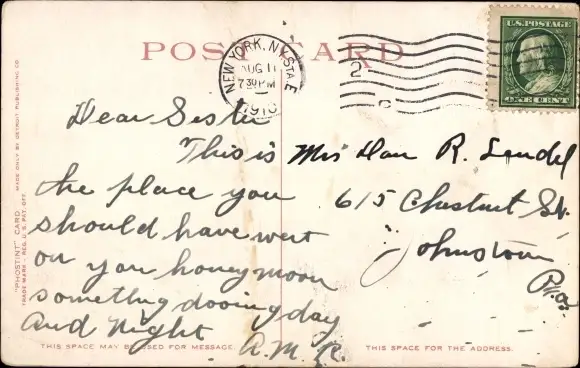 POST CARD
NEW YORK, N.Y. STA E
AUG 11
7 30 PM
1910
2
U.S. POSTAGE
ONE CENT
"PHOSTINT" CARD MADE ONLY BY DETROIT PUBLISHING CO.
TRADE MARK - REG. U.S. PAT. OFF.
Dear Sister
This is
the place you
should have went
on you honey moon
something dooing day
and night
A. M. R.
Mrs Dan R.
615 Chestnut St.
Johnstown
Pa.
THIS SPACE MAY BE USED FOR MESSAGE.
THIS SPACE FOR THE ADDRESS.